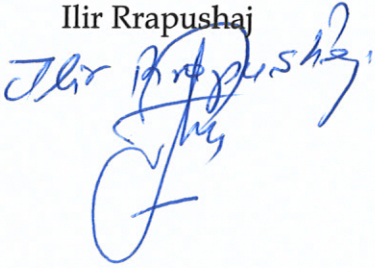 Ilir Rrapushaj
Ilir Rrapushaj